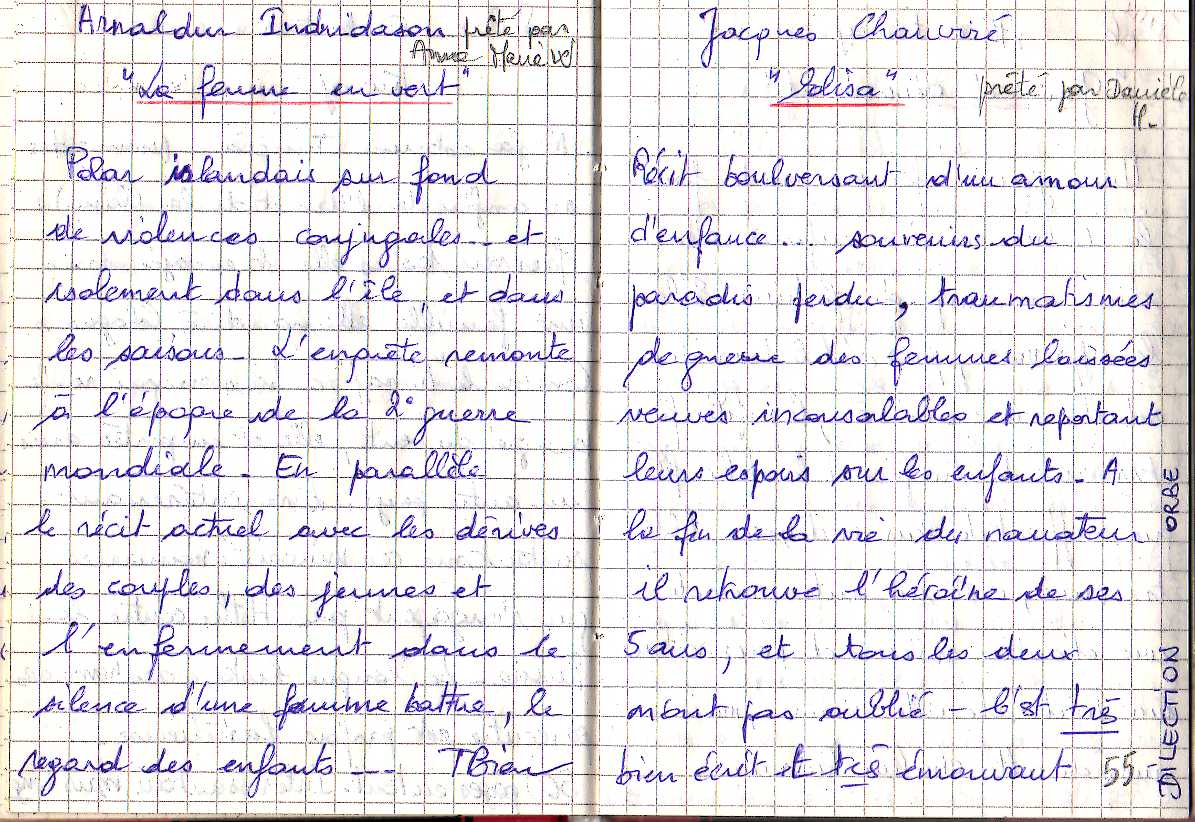 Arnaldur Indridason prêté par
Anne Marie
"La femme en vert"
Polar islandais sur fond
de violences conjugales - et
isolement dans l'île, et dans
les saisons - L'enquête remonte
à l'époque de la 2° guerre
mondiale. En parallèle
le récit actuel avec les dérives
des couples, des jeunes et
l'enfermement dans le
silence d'une femme battue, le
regard des enfants --- TBien
Jacques Chauviré
"Elisa" prêté par Danièle
H.
Récit boulversant d'un amour
d'enfance... souvenirs du
paradis perdu, traumatismes
de guerre des femmes laissées
veuves inconsolables et reportant
leurs espoirs sur les enfants. A
la fin de la vie du narrateur
il retrouve l'héroïne de ses
5 ans, et tous les deux
n'ont pas oublié - C'est très
bien écrit et très émouvant 55-
DILECTION ORBE